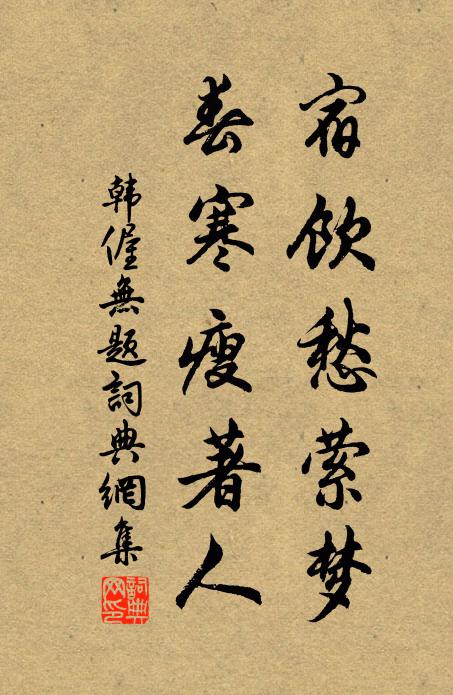 宿飲愁萦梦
春寒瘦著人
韩偓無题詞典網集
詞典网印